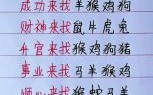 成功来找羊猴鸡狗
财神来找鼠牛虎兔
升官来找猴鸡狗猪
事业来找马羊猴鸡
顺心来找猴蛇马羊